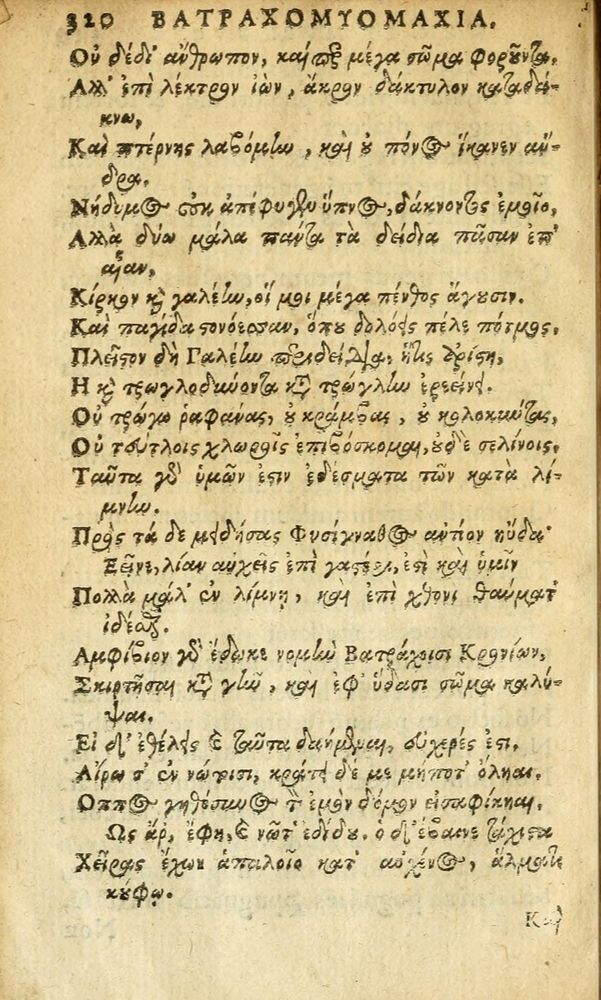 320 ΒΑΤΡΑΧΟΜΥΟΜΑΧΙΑ.
Οὐ δέδι᾽ ἄνθρωπον, καίπερ μέγα σῶμα φοροῦντα,
Ἀλλ᾽ ἐπὶ λέκτρον ἰὼν, ἄκρον δάκτυλον καταδά-
κνω,
Καὶ πτέρνης λαβόμην, καὶ οὐ πόνος ἵκανεν ἄν-
δρα.
Νήδυμος οὐκ ἀπέφυγεν ὕπνος, δάκνοντος ἐμεῖο,
Ἀλλὰ δύω μάλα πάντα τὰ δείδια πᾶσαν ἐπ᾽
αἶαν,
Κίρκον καὶ γαλέην, οἵ μοι μέγα πένθος ἄγουσιν.
Καὶ παγίδα στονόεσσαν, ὅπου δολόεις πέλε πότμος,
Πλεῖστον δὴ Γαλέην περιδείδια, ἥτις ἀρίστη,
Η καὶ τρωγλοδύνοντα κατὰ τρώγλην ἐρεείνει.
Οὐ τρώγω ῥαφάνας, οὐ κράμβας, οὐ κολοκύντας,
Οὐ τεύτλοις χλωροῖς ἐπιβόσκομαι, οὐδὲ σελίνοις.
Ταῦτα γὰρ ὑμῶν ἐστιν ἐδέσματα τῶν κατὰ λί-
μνην.
Πρὸς τά δε μειδήσας Φυσίγναθος ἀντίον ηὔδα·
Ξεῖνε, λίαν αὐχεῖς ἐπὶ γαστέρι, ἐστὶ καὶ ὑμῖν
Πολλὰ μάλ᾽ ἐν λίμνη, καὶ ἐπὶ χθονὶ θαύματ᾽
ἰδέσθαι.
Ἀμφίβιον γὰρ ἔδωκε νομὴν Βατράχοισι Κρονίων,
Σκιρτῆσαι κατὰ γῆν, καὶ ἐφ᾽ ὕδασι σῶμα καλύ-
ψαι.
Εἰ δ᾽ ἐθέλεις καὶ ταῦτα δαήμεναι, εὐχερές ἐστι.
Αἴρω σ᾽ ἐν νώτοισι, κράτει δέ με μήποτ᾽ ὄληαι.
Οππως γηθόσυνος τὸν ἐμὸν δόμον εἰσαφίκηαι.
Ως ἄρ᾽ ἔφη, καὶ νῶτ᾽ ἐδίδου. ὁ δ᾽ ἔβαινε τάχιστα
Χεῖρας ἔχων ἁπαλοῖο κατ᾽ αὐχένος, ἅλματι
κούφῳ.
Καὶ